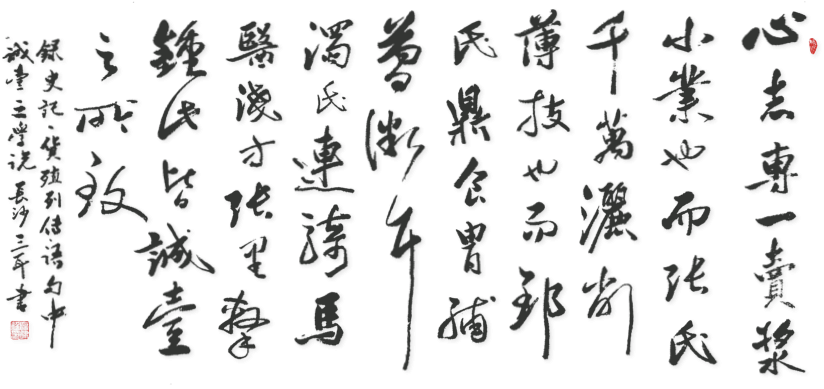 心志專一賣漿
小業也而張氏
千萬灑削
薄技也而郅
氏鼎食胃脯
簡微耳
濁氏連騎馬
醫淺方張里擊
鍾此皆誠壹
之所致
錄史記貨殖列傳語句中
誠壹之學說 長沙三耳書